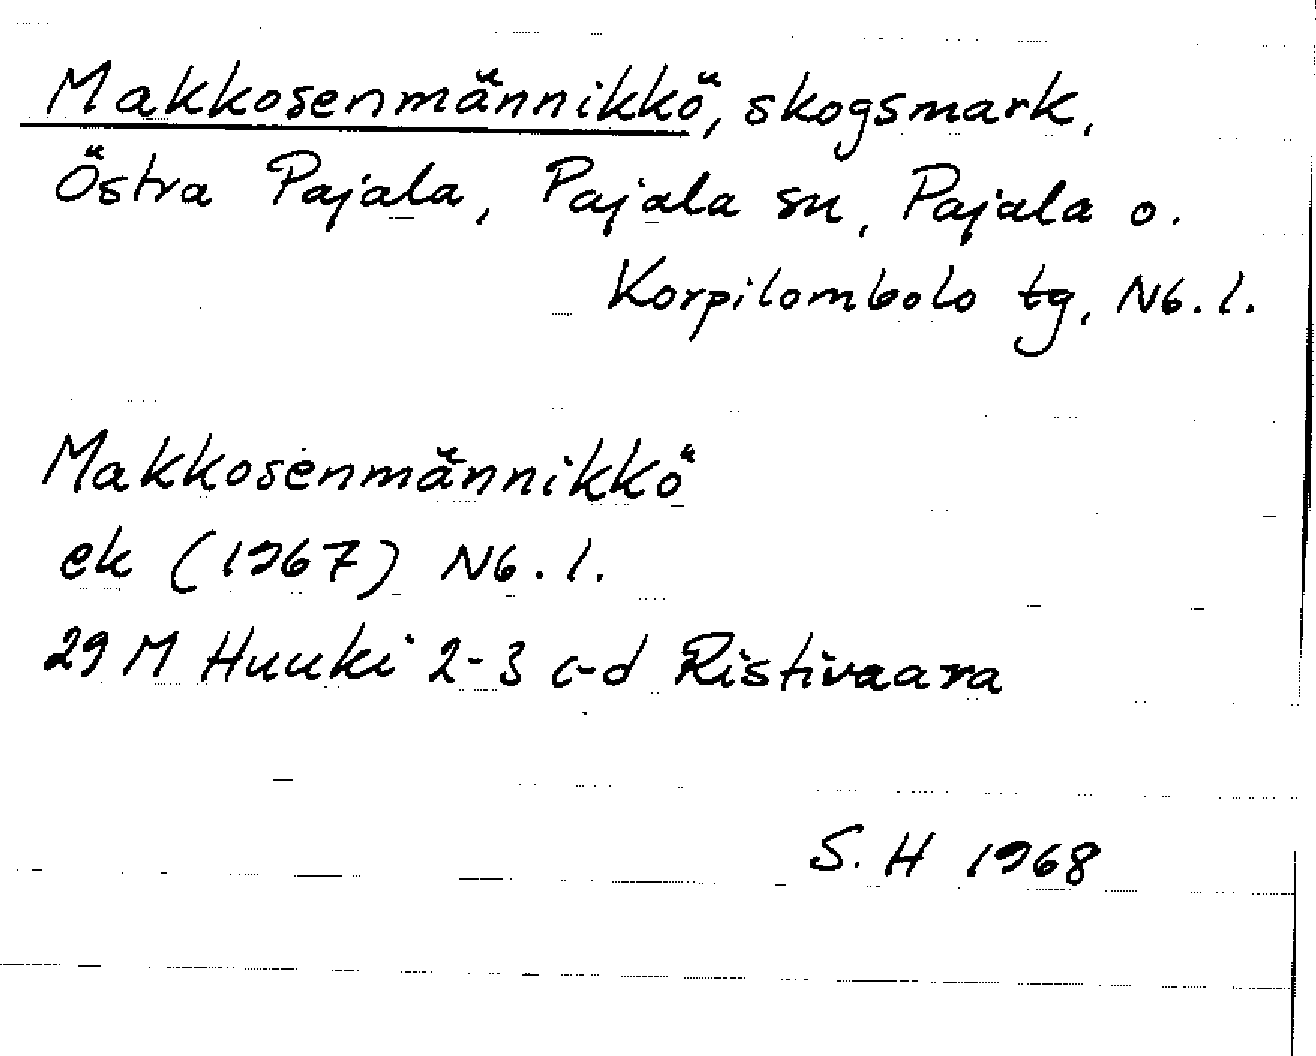 Makkosenmännikkö, skogsmark,
Östra Pajala, Pajala sn, Pajala o.
Korpilombolo tg, Nb. l.
Makkosenmännikkö
ek (1967) Nb. l.
29 M Huuki 2-3 c-d Ristivaara
S. H 1968